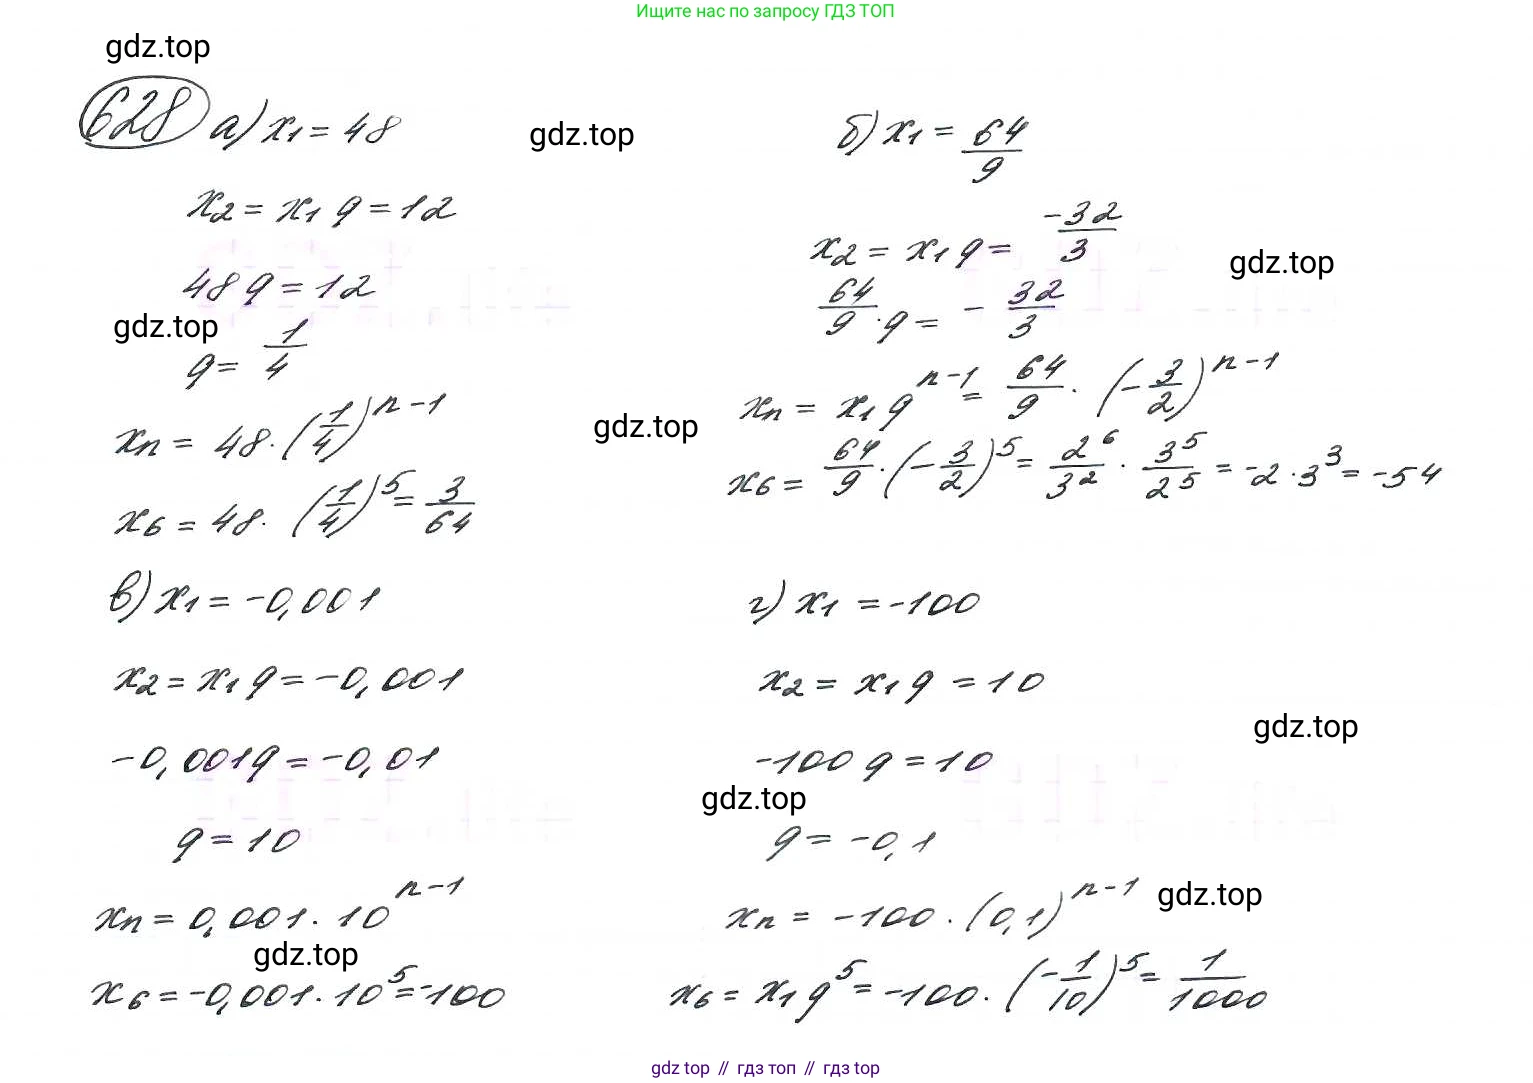 Ищите нас по запросу ГДЗ ТОП
gdz.top
628 а) x₁ = 48
gdz.top
x₂ = x₁ q = 12
48 q = 12
gdz.top
q = 1/4
xₙ = 48 · (1/4)ⁿ⁻¹
x₆ = 48 · (1/4)⁵ = 3/64
б) x₁ = 64/9
x₂ = x₁ q = -32/3
gdz.top
64/9 · q = - 32/3
gdz.top
xₙ = x₁ qⁿ⁻¹ = 64/9 · (-3/2)ⁿ⁻¹
x₆ = 64/9 · (-3/2)⁵ = 2⁶/3² · 3⁵/2⁵ = -2 · 3³ = -54
в) x₁ = -0,001
x₂ = x₁ q = -0,001
-0,001q = -0,01
q = 10
xₙ = 0,001 · 10ⁿ⁻¹
gdz.top
x₆ = -0,001 · 10⁵ = -100
г) x₁ = -100
x₂ = x₁ q = 10
gdz.top
-100 q = 10
gdz.top
q = -0,1
xₙ = -100 · (0,1)ⁿ⁻¹
gdz.top
x₆ = x₁ q⁵ = -100 · (-1/10)⁵ = 1/1000
gdz top // гдз топ // гдз top